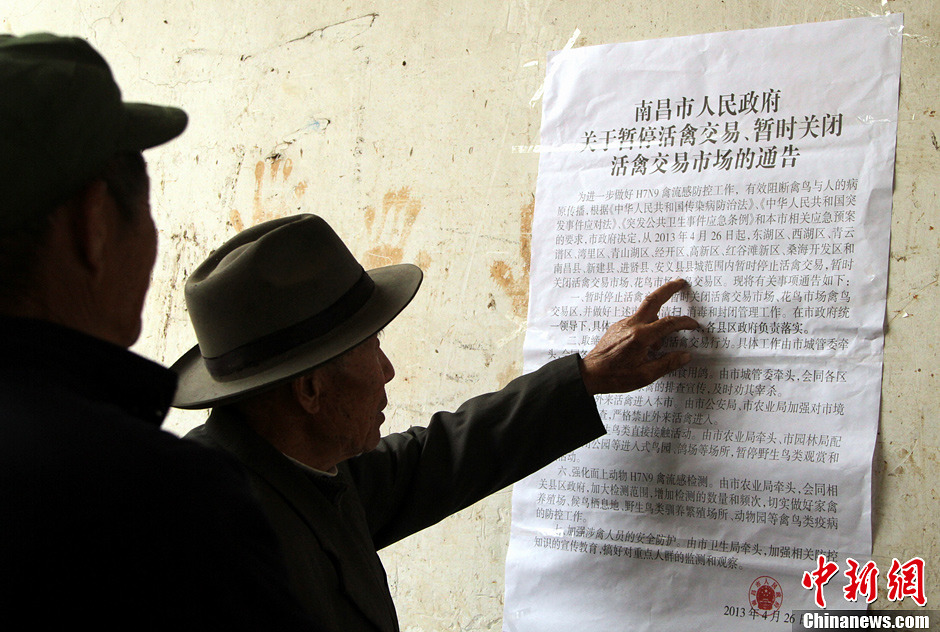 南昌市人民政府
关于暂停活禽交易、暂时关闭
活禽交易市场的通告
为进一步做好H7N9禽流感防控工作，有效阻断禽鸟与人的病
原传播，根据《中华人民共和国传染病防治法》、《中华人民共和国
突发事件应对法》、《突发公共卫生事件应急条例》和本市相关应急预案
的要求，市政府决定，从2013年4月26日起，东湖区、西湖区、青云
谱区、湾里区、青山湖区、经开区、高新区、红谷滩新区、桑海开发区和
南昌县、新建县、进贤县、安义县县城范围内暂时停止活禽交易，暂时
关闭活禽交易市场、花鸟市场禽鸟交易区。现将有关事项通告如下：
一、暂时停止活禽交易 暂时关闭活禽交易市场、花鸟市场禽鸟
交易区，并做好上述 清扫、消毒和封闭管理工作。在市政府统
一领导下，具体 各县区政府负责落实。
二、取缔 活禽交易行为。具体工作由市城管委牵
头，会
和食用鸽。由市城管委牵头，会同各区
的排查宣传，及时劝其宰杀。
外来活禽进入本市。由市公安局、市农业局加强对市境
查，严格禁止外来活禽进入。
鸟类直接接触活动。由市农业局牵头，市园林局配
公园等进人式鸟园、鸽场等场所，暂停野生鸟类观赏和
活动。
六、强化面上动物H7N9禽流感检测。由市农业局牵头，会同相
关县区政府，加大检测范围，增加检测的数量和频次，切实做好家禽
养殖场、候鸟栖息地、野生鸟类驯养繁殖场所、动物园等禽鸟类疫病
的防控工作。
七、加强涉禽人员的安全防护。由市卫生局牵头，加强相关防控
知识的宣传教育，搞好对重点人群的监测和观察。
南昌市人民政府
2013年4月26日
中新网
Chinanews.com